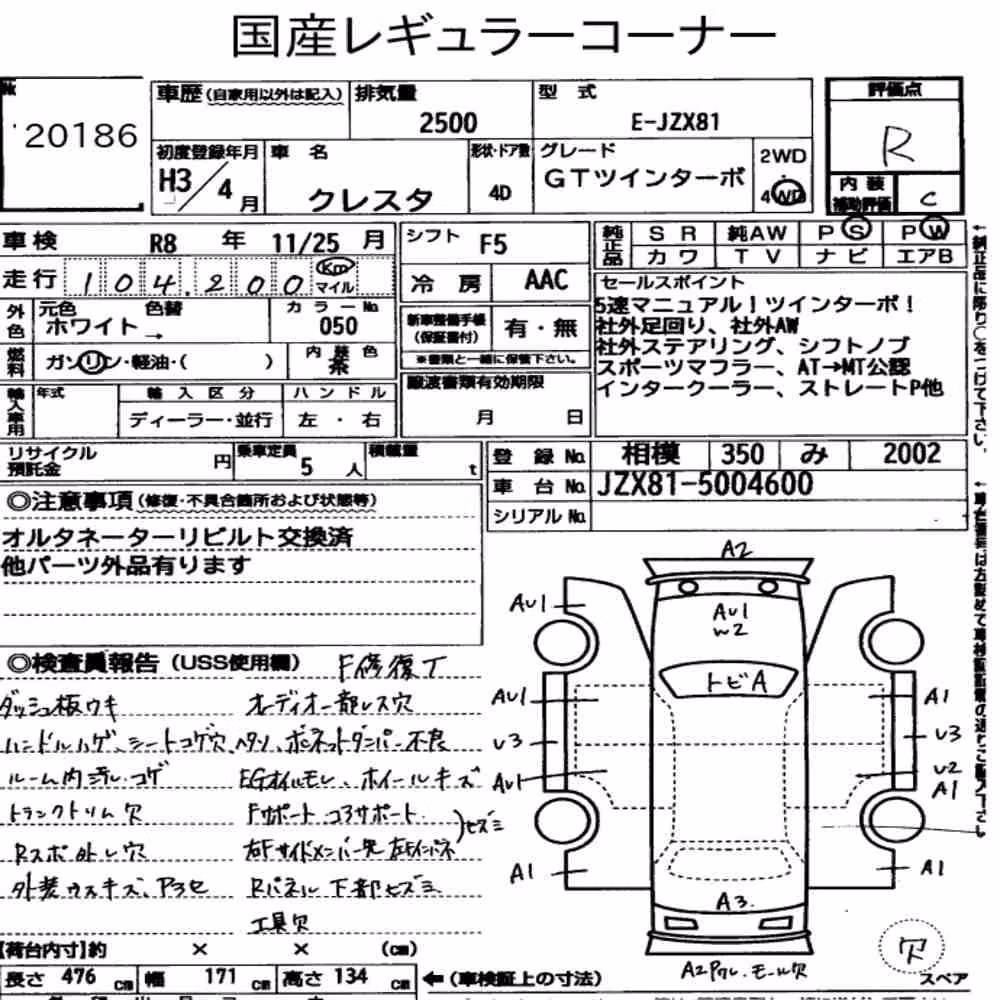 国産レギュラーコーナー
20186
車歴(自家用以外は記入)
排気量
2500
型 式
E-JZX81
評価点
R
初度登録年月
H3/4月
車 名
クレスタ
形状・ドア数
4D
グレード
GTツインターボ
2WD
4WD
内 装
補助評価
C
車検 R8 年 11/25 月
走行 104,200 Km
マイル
外色
元色 色替
ホワイト →
カラーNo
050
燃料
ガソリン・軽油・( )
内装色
茶
輸入車用
年式
輸入区分
ディーラー・並行
ハンドル
左・右
シフト F5
冷 房 AAC
新車整備手帳
(保証書付)
有・無
※書類と一緒に保管下さい。
譲渡書類有効期限
月 日
純正品
SR 純AW PS PW
カワ TV ナビ エアB
セールスポイント
5速マニュアル!ツインターボ!
社外足回り、社外AW
社外ステアリング、シフトノブ
スポーツマフラー、AT→MT公認
インタークーラー、ストレートP他
リサイクル
預託金
円
乗車定員
5 人
積載量
t
登 録 No. 相模 350 み 2002
車 台 No. JZX81-5004600
シリアル No.
◎注意事項(修復・不具合箇所および状態等)
オルタネーターリビルト交換済
他パーツ外品有ります
◎検査員報告(USS使用欄) F修復了
ダッシュ板ウキ オーディオ一部レス穴
ハンドルハゲ、シートコゲ穴ヘタリ、ボネットダンパー不良
ルーム内汚レ・コゲ EGオイルモレ、ホイールキズ
トランクトリム欠 Fサポート コアサポート
Rスポ外レ穴 右Fサイドメンバー先 左右インパネ
ヒズミ
外装ウスキズ、アセ Rパネル下部ヒズミ
工具欠
A2
AU1
AU1
W2
トビA
AU1
A1
U3
U3
AU1
U2
A1
A1
A1
A3
A2ワレ・モール欠
欠
スペア
【荷台内寸】約 × × (cm)
長さ 476 cm 幅 171 cm 高さ 134 cm
←(車検証上の寸法)